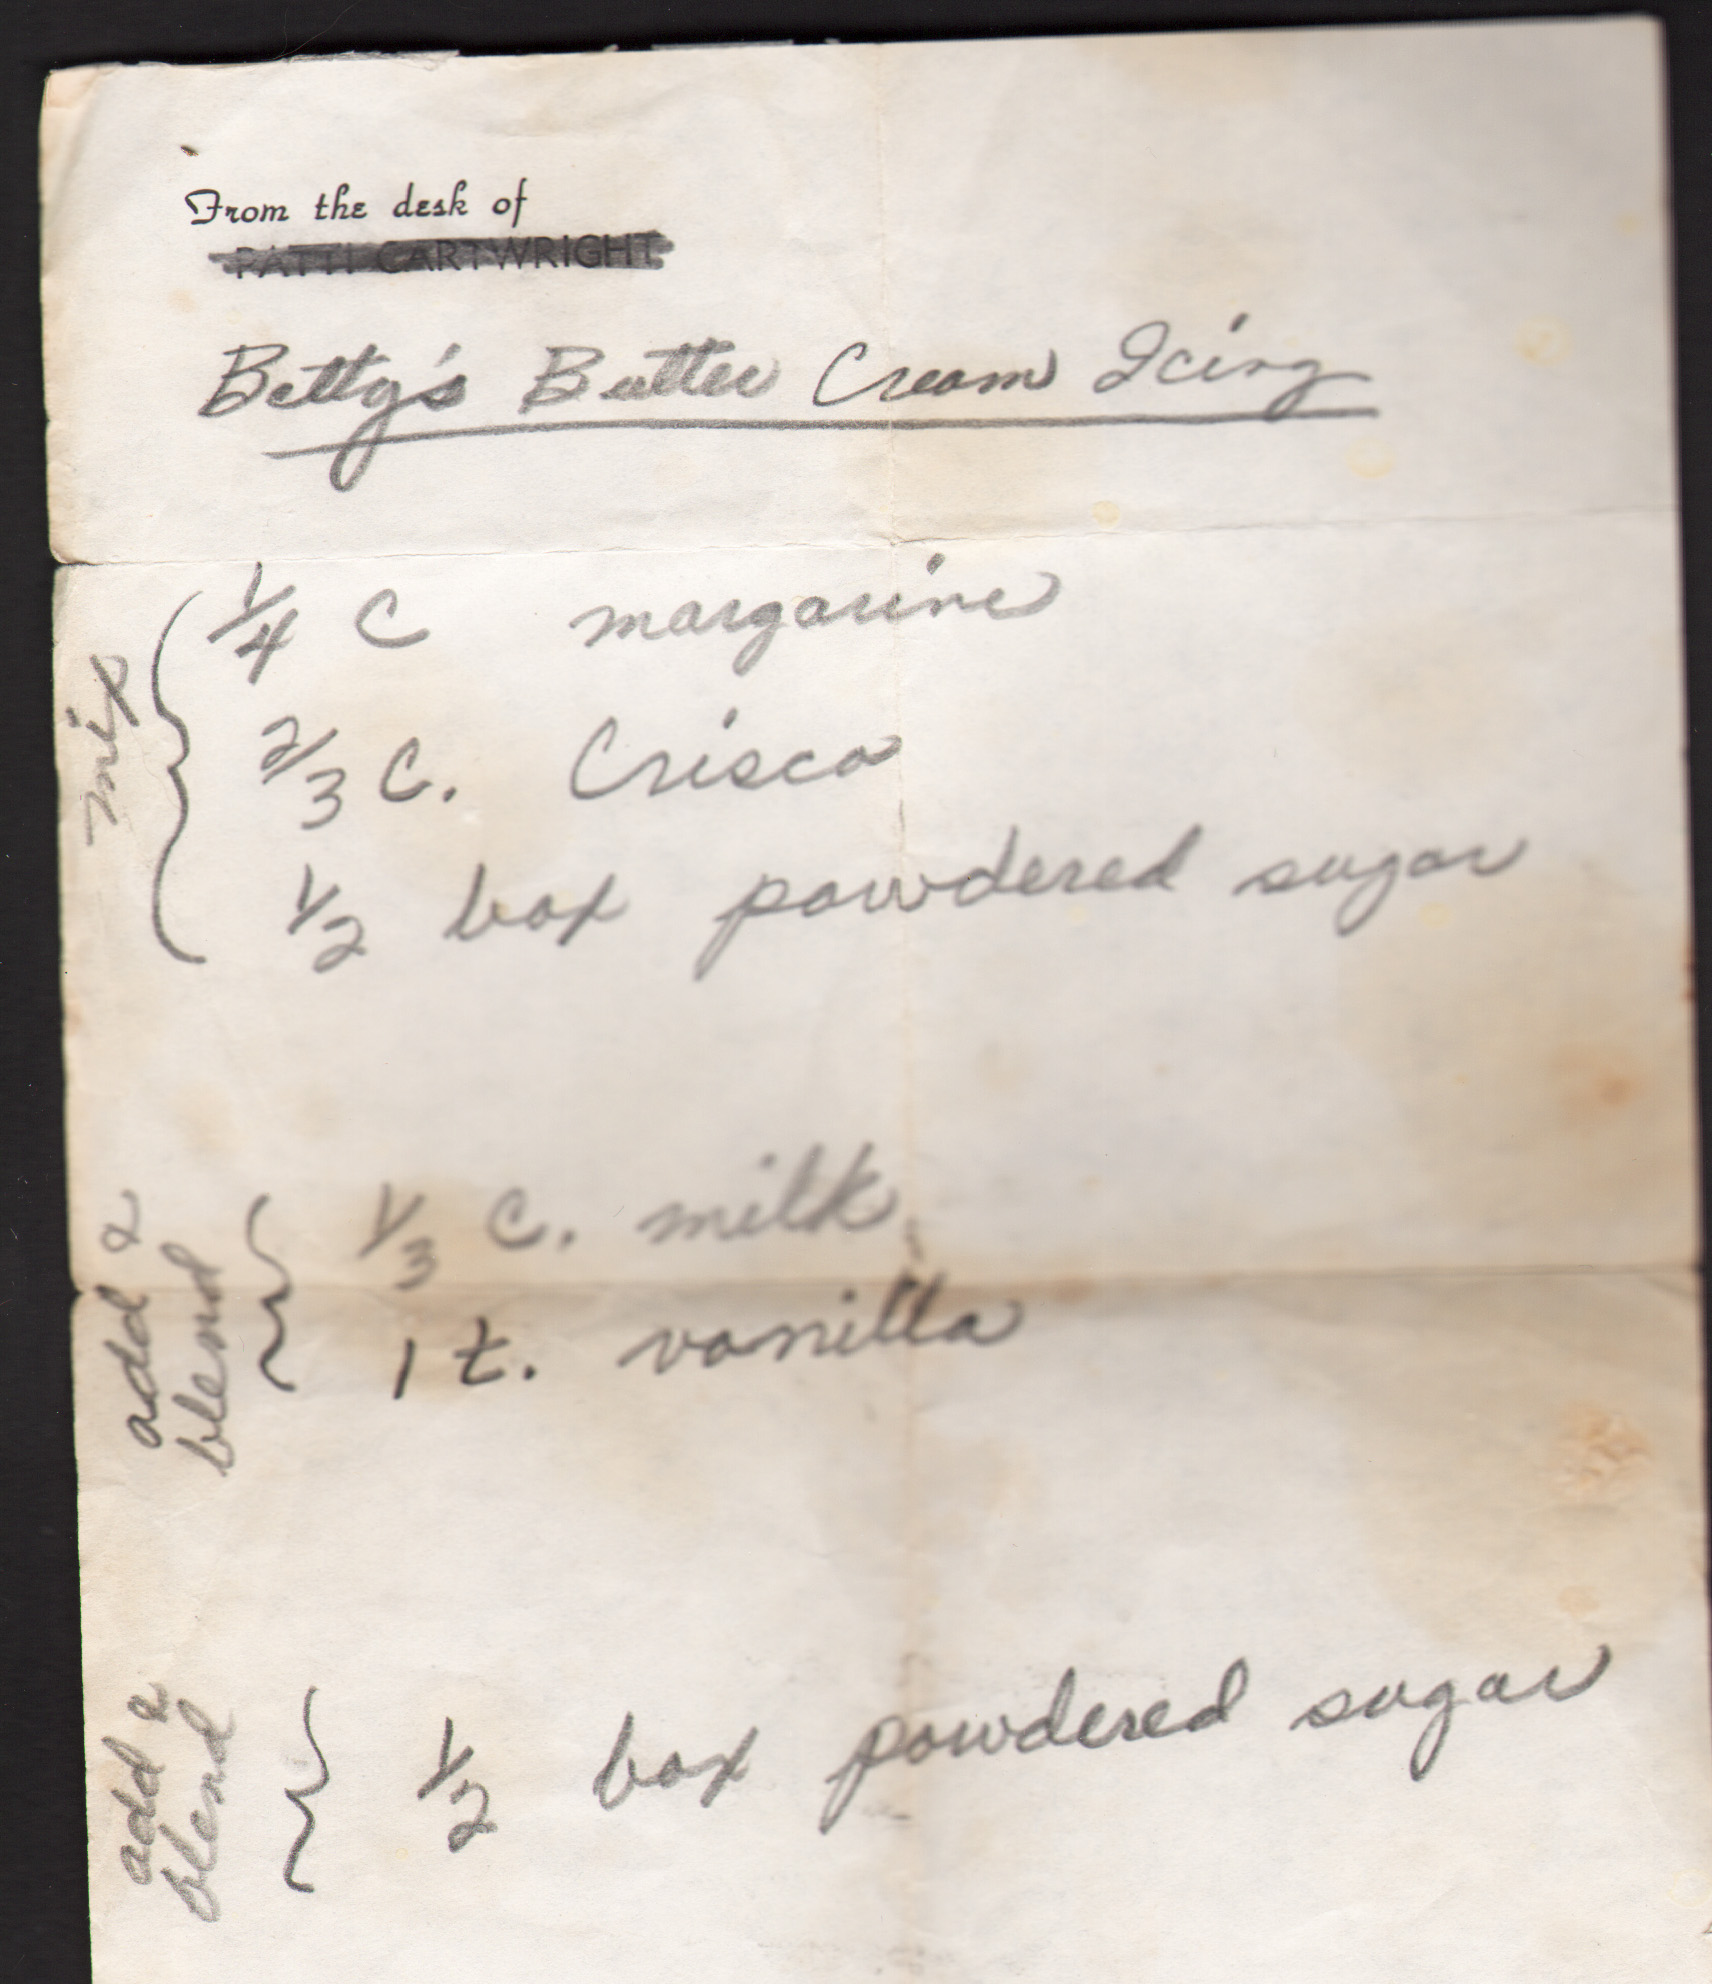 From the desk of
PATTI CARTWRIGHT
Betty's Butter Cream Icing
mix
1/4 C margarine
2/3 C. Crisco
1/2 box powdered sugar
add &
blend
1/3 C. milk
1 t. vanilla
add &
blend
1/2 box powdered sugar